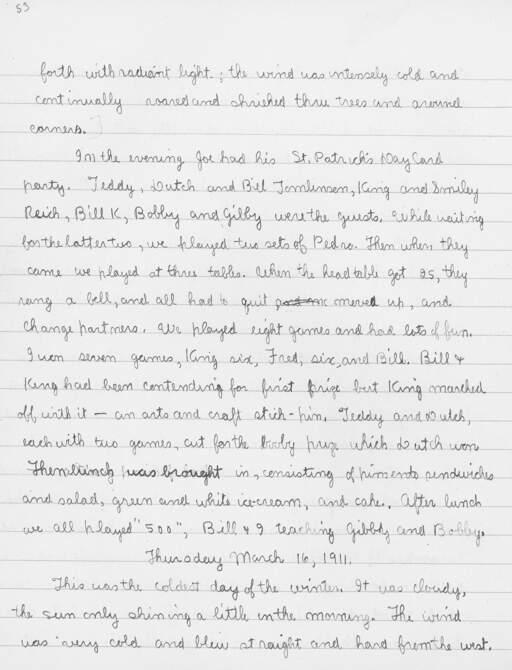 53
forth with radiant light; the wind was intensely cold and
continually roared and shrieked thru trees and around
corners.]
In the evening Joe had his St. Patrick's Day Card
party. Teddy, Dutch and Bill Tomlinson, King and Smiley
Reich, Bill K, Bobby and Gilby were the guests. While waiting
for the latter two, we played two sets of Pedro. Then when they
came we played at three tables. When the head table got 25, they
rang a bell, and all had to quit, moved up, and
change partners. We played eight games and had lots of fun.
I won seven games, King six, Fred, six, and Bill. Bill &
King had been contending for first prize but King marched
off with it — an arts and craft stick-pin. Teddy and Dutch,
each with two games, cut for the booby prize which Dutch won
Then lunch was brought in, consisting of pimento sendwiches
and salad, green and white ice-cream, and cake. After lunch
we all played "500", Bill & I teaching Gibby and Bobby.
Thursday March 16, 1911.
This was the coldest day of the winter. It was cloudy,
the sun only shining a little in the morning. The wind
was very cold and blew straight and hard from the west.